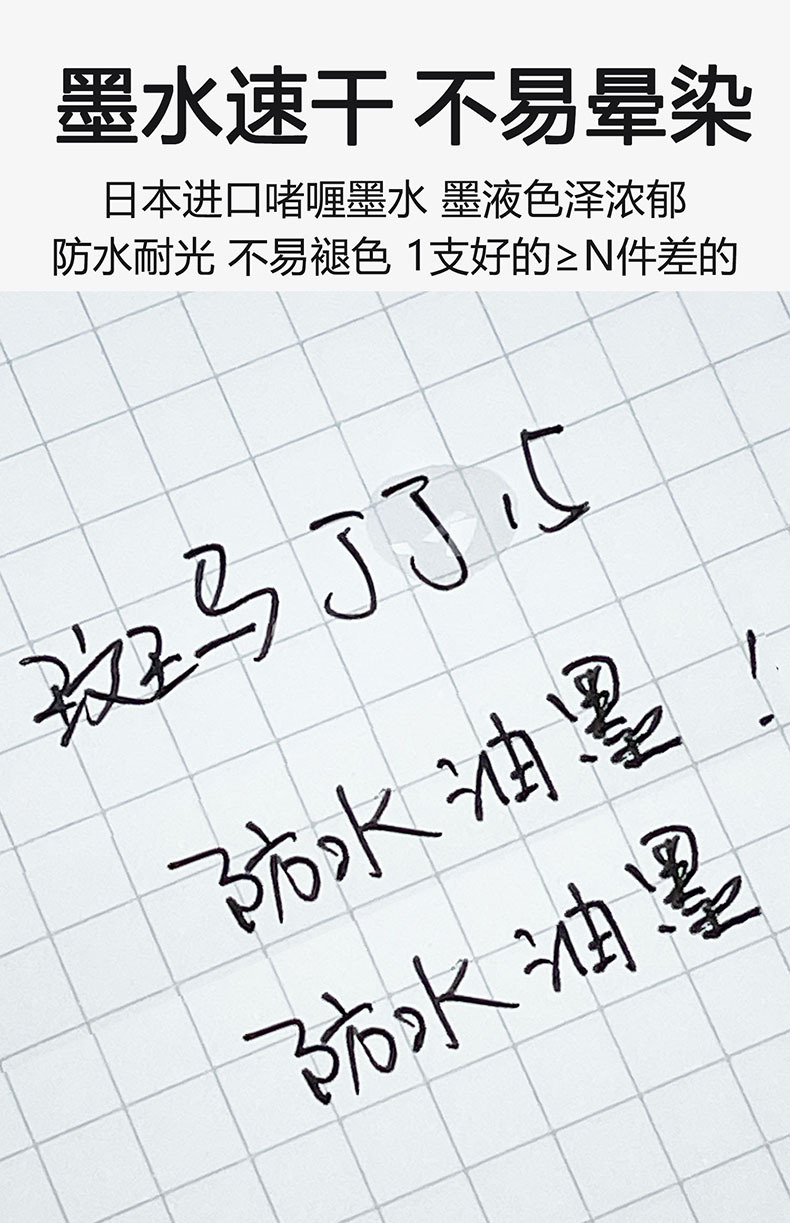 墨水速干 不易晕染
日本进口啫喱墨水 墨液色泽浓郁
防水耐光 不易褪色 1支好的≥N件差的
斑马JJ15
防水油墨！
防水油墨